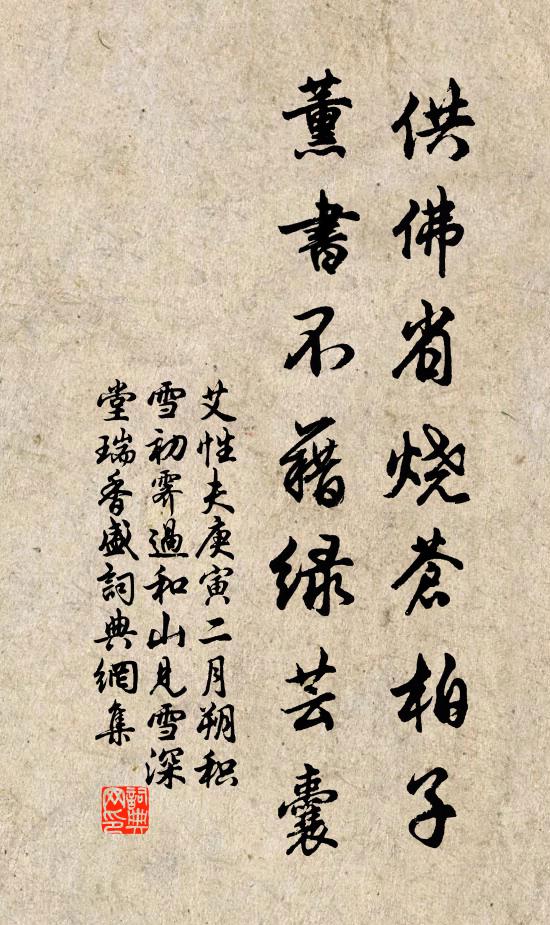 供佛省烧苍柏子
薰书不藉绿芸囊
艾性夫庚寅二月朔积
雪初霁過和山見雪深
堂瑞香盛詞典網集
詞典网印